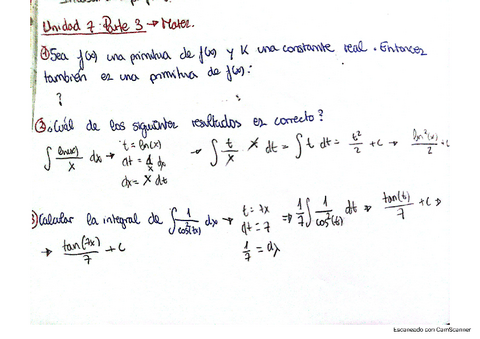 Unidad 7: Parte 3 → Mates.
① Sea f(x) una primitiva de f(x) y K una constante real. Entonces
también es una primitiva de f(x):
?
② ¿Cuál de los siguientes resultados es correcto?
∫ ln(x)/x dx → t = ln(x) dt = 1/x dx dx = x dt → ∫ t/x x dt = ∫ t dt = t²/2 + c → ln²(x)/2 + c
3) Calcular la integral de ∫ 1/cos²(7x) dx → t = 7x dt = 7 1/7 = dx ⇒ 1/7 ∫ 1/cos²(t) dt ⇒ tan(t)/7 + c ⇒
⇒ tan(7x)/7 + c
Escaneado con CamScanner